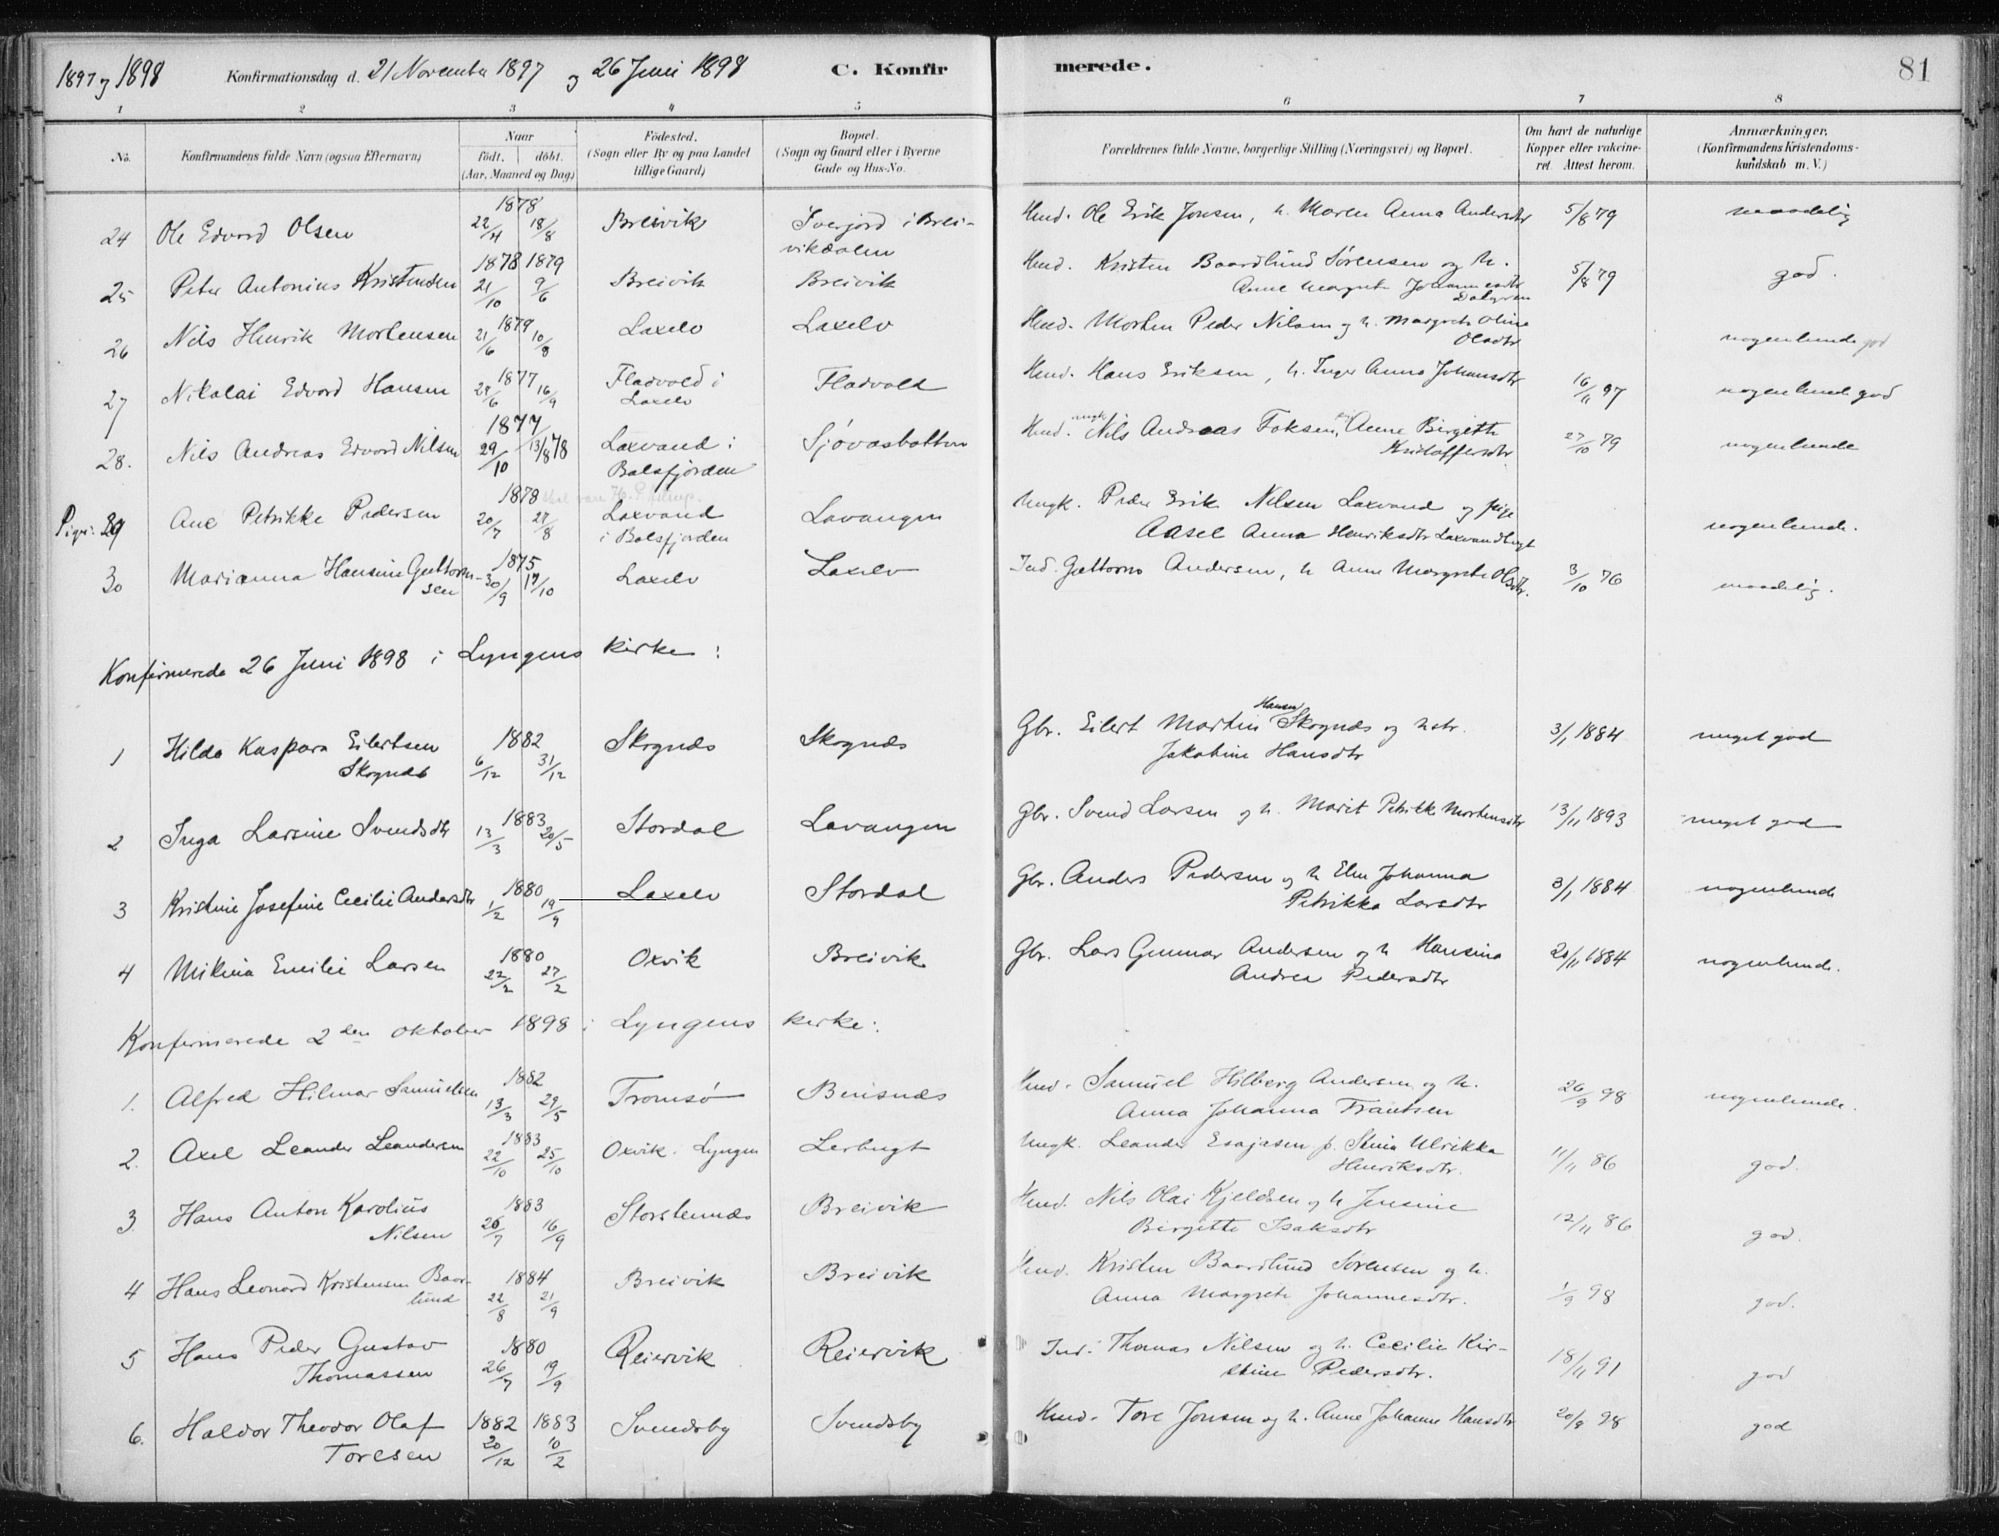 1897 og 1898 Konfirmationsdag d. 21 November 1897 og 26 Juni 1898 C. Konfirmerede. 81
1 2 3 4 5 6 7 8
No. Konfirmandens fulde Navn (ogsaa Efternavn) Naar födt. döbt. (Aar, Maaned og Dag) Födested. (Sogn eller By og paa Landet tillige Gaard) Bopæl. (Sogn og Gaard eller i Byerne Gade og Hus-No. Forældrenes fulde Navne, borgerlige Stilling (Næringsvei) og Bopæl. Om havt de naturlige Kopper eller vakcineret. Attest herom. Anmærkninger. (Konfirmandens Kristendomskundskab m. V.)
24 Ole Edvard Olsen 1878 22/4 18/8 Breivik Iverjord i Breivikdalen Hmd. Ole Erik Jonsen, h. Maren Anna Andersdtr 5/8 79 maadelig
25 Peter Antonius Kristensen 1878 21/10 1879 9/6 Breivik Breivik Hmd. Kristen Baardlund Sørensen og h. Anne Margrete Johannesdtr 5/8 79 god.
26 Nils Henrik Mortensen 1879 21/6 10/8 Laxelv Laxelv Hmd. Morten Peder Nilsen og h. Margrete Oline Olsdtr nogenlunde god
27 Nikolai Edvard Hansen 1877 29/6 16/9 Fladvold i Laxelv Fladvold Hmd. Hans Eriksen, h. Inger Anna Johansdtr 16/11 97 nogenlunde god
28. Nils Andreas Edvard Nilsen 1877 29/10 13/8 78 Laxvand i Balsfjorden Sjøvasbotten Hmd. ungk. Nils Andreas Foksen, Anne Birgitte Kristoffersdtr. 27/10 79 nogenlunde
Piger: 29 Ane Petrikke Pedersen 1878 20/7 27/8 Laxvand i Balsfjorden Lavangen Ungk. Peder Erik Nilsen Laxvand og pige Aasel Anna Henriksdtr Laxvandbugt nogenlunde.
30 Marianna Hansine Guttormsen 1875 30/9 17/10 Laxelv Laxelv Ind. Guttorm Andersen, h. Anne Margrete Olsdtr. 3/10 76 maadelig.
Konfirmerede 26 Juni 1898 i Lyngens kirke:
1 Hilda Kaspara Eilertsen Skognæs 1882 6/12 31/12 Skognæs Skognæs Gbr. Eilert Martin Hansen Skognæs og hstr. Jakobine Hansdtr 3/1 1884 meget god
2 Inga Larsine Svendsdtr 1883 13/3 20/5 Stordal Lavangen Gbr. Svend Larsen og h. Marit Petrikk Mortensdtr 13/11 1893 meget god
3 Kristine Josefine Cecilie Andersdtr 1880 1/2 19/9 Laxelv Stordal Gbr. Anders Pedersen og h Elen Johanna Petrikka Larsdtr 3/1 1884 nogenlunde
4 Mikina Emilie Larsen 1880 22/2 27/2 Oxvik Breivik Gbr. Lars Gunnar Andersen og h Hansina Andrea Pedersdtr 20/11 1884 nogenlunde.
Konfirmerede 2den oktober 1898 i Lyngens kirke:
1. Alfred Hilmar Samuelsen 1882 13/3 29/5 Tromsø Beisnæs Hmd. Samuel Hilberg Andersen og h. Anna Johanna Frantsen 26/9 98 nogenlunde.
2. Axel Leander Leandersen 1883 22/10 25/10 Oxvik. Lyngen Lerbugt Ungk. Leander Esajasen p. Stina Ulrikka Henriksdtr. 11/11 86 god.
3. Hans Anton Karolius Nilsen 1883 26/7 16/9 Storstennæs Breivik Hmd. Nils Olai Kjeldsen og h Jensine Birgitte Isaksdtr 12/11 86 god.
4 Hans Leonard Kristensen Baarlund 1884 22/8 21/9 Breivik Breivik Hmd. Kristen Baardlund Sørensen og h. Anna Margrete Johannesdtr. 1/9 98 god.
5 Hans Peder Gustav Thomassen 1880 26/7 19/9 Reiervik Reiervik Ind. Thomas Nilsen og h. Cecilie Kirstine Pedersdtr. 18/11 91 god
6. Haldor Theodor Olaf Toresen 1882 20/12 1883 10/2 Svendsby Svendsby Hmd. Tore Jonsen og h. Anne Johanne Hansdtr 20/9 98 god